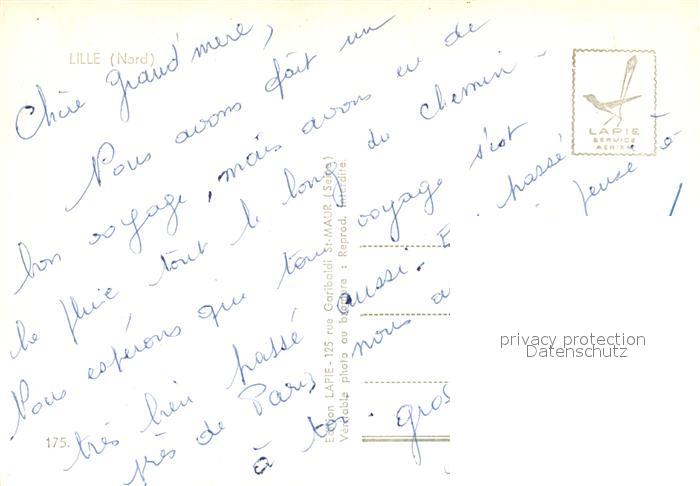 LILLE (Nord)
Chère Grand'mere,
Nous avons fait un
bon voyage, mais avons eu de
la pluie tout le long du chemin -
Nous espérons que ton voyage s'est
très bien passé aussi. E passé
près de Paris nous a pensé à
à toi. gros
175.
Edition LAPIE - 125 rue Garibaldi St-MAUR (Seine)
Véritable photo au bromure : Reprod. Interdite.
LAPIE
SERVICE
AERIEN
privacy protection
Datenschutz